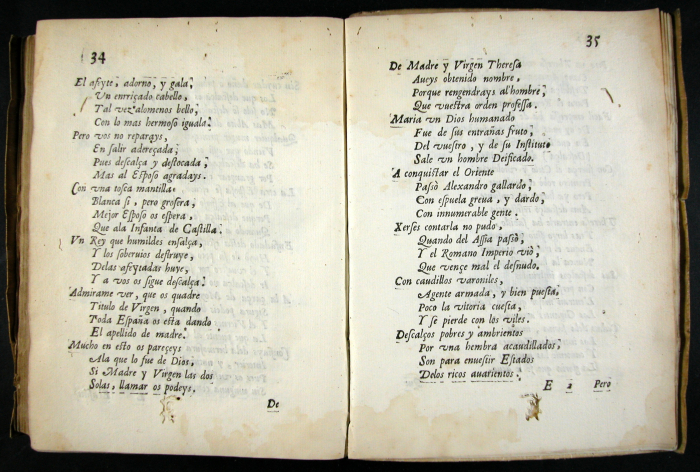 34
El afeyte, adorno, y gala,
Vn enrriçado cabello,
Tal vez alomenos bello,
Con lo mas hermoso iguala.
Pero vos no reparays,
En salir adereçada,
Pues descalça y destocada,
Mas al Esposo agradays.
Con vna tosca mantilla
Blanca si, pero grosera,
Mejor Esposo os espera,
Que ala Infanta de Castilla.
Vn Rey que humildes ensalça,
Y los soberuios destruye,
Delas afeytadas huye,
Y a vos os sigue descalça.
Admirame ver, que os quadre
Titulo de Virgen, quando
Toda España os esta dando
El apellido de madre.
Mucho en esto os pareçeys
Ala que lo fue de Dios,
Si Madre y Virgen las dos
Solas, llamar os podeys.
De
35
De Madre y Virgen Theresa
Aueys obtenido nombre,
Porque rengendrays al hombre,
Que vuestra orden professa.
Maria vn Dios humanado
Fue de sus entrañas fruto,
Del vuestro, y de su Instituto
Sale vn hombre Deificado.
A conquistar el Oriente
Pasò Alexandro gallardo,
Con espuela greua, y dardo,
Con innumerable gente.
Xerses contarla no pudo,
Quando del Assia passò,
Y el Romano Imperio viò,
Que vençe mal el desnudo.
Con caudillos varoniles,
Agente armada, y bien puesta,
Poco la vitoria cuesta,
Y se pierde con los viles.
Descalços pobres y ambrientos
Por vna hembra acaudillados,
Son para enuestir Estados
Delos ricos auarientos.
E 2 Pero